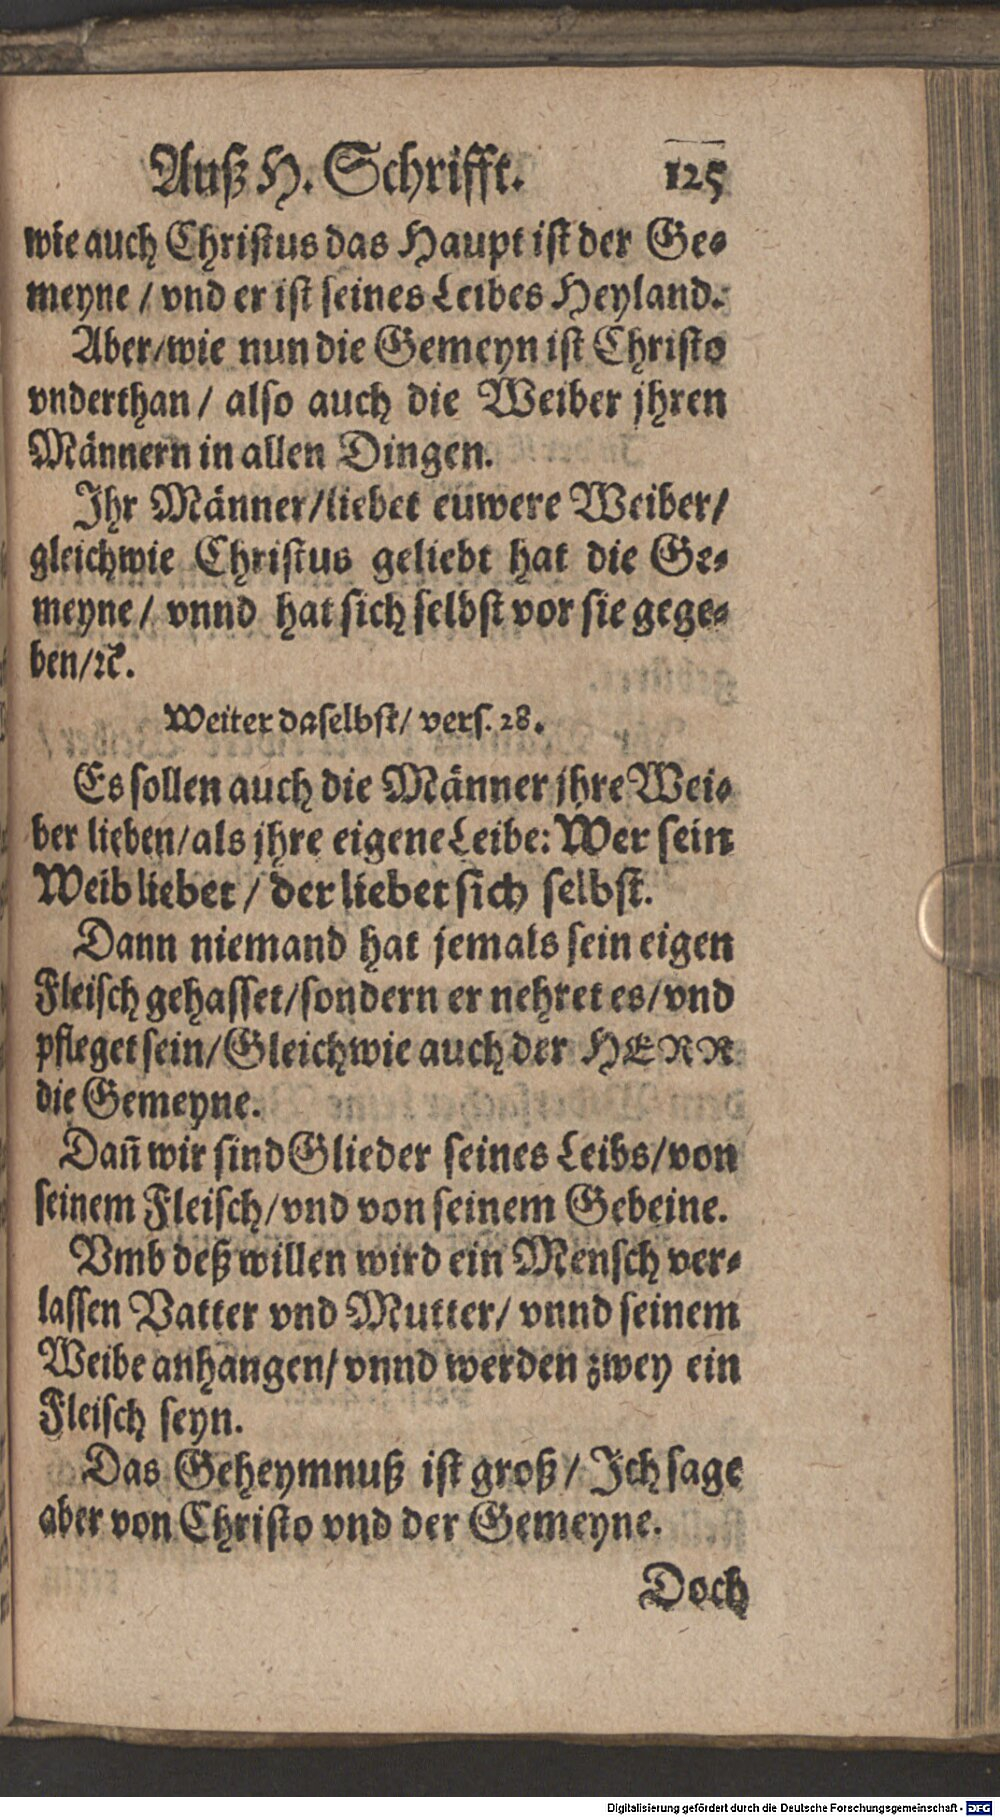 Auß H. Schrifft. 125
wie auch Christus das Haupt ist der Ge-
meyne / vnd er ist seines Leibes Heyland.
Aber / wie nun die Gemeyn ist Christo
vnderthan / also auch die Weiber jhren
Männern in allen Dingen.
Ihr Männer / liebet euwere Weiber /
gleichwie Christus geliebt hat die Ge-
meyne / vnnd hat sich selbst vor sie gege-
ben / ꝛc.
Weiter daselbst / vers. 28.
Es sollen auch die Männer jhre Wei-
ber lieben / als jhre eigene Leibe: Wer sein
Weib liebet / der liebet sich selbst.
Dann niemand hat jemals sein eigen
Fleisch gehasset / sondern er nehret es / vnd
pfleget sein / Gleichwie auch der HERR
die Gemeyne.
Dañ wir sind Glieder seines Leibs / von
seinem Fleisch / vnd von seinem Gebeine.
Vmb deß willen wird ein Mensch ver-
lassen Vatter vnd Mutter / vnnd seinem
Weibe anhangen / vnnd werden zwey ein
Fleisch seyn.
Das Geheymnuß ist groß / Ich sage
aber von Christo vnd der Gemeyne.
Doch
Digitalisierung gefördert durch die Deutsche Forschungsgemeinschaft - DFG